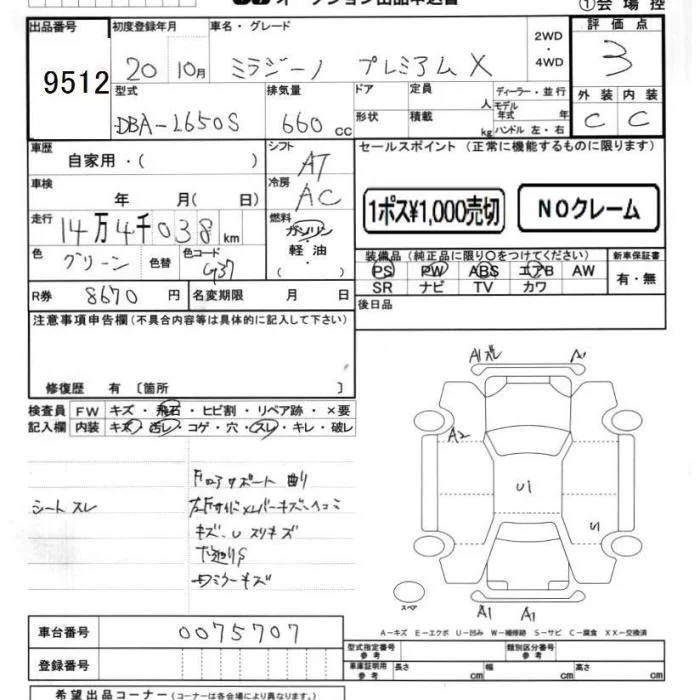 オークション出品申込書
①会場控
出品番号 初度登録年月 車名・グレード 2WD・4WD 評価点
9512 20 10月 ミラジーノ プレミアム X 3
型式 排気量 ドア 定員 人 ディーラー・並行 外装 内装
DBA-L650S 660 cc 形状 積載 kg モデル年式 年 ハンドル 左・右 C C
車歴 自家用・( ) シフト AT セールスポイント (正常に機能するものに限ります)
車検 年 月( 日) 冷房 AC
1ポス¥1,000売切 NOクレーム
走行 14万4千038km 燃料 ガソリン
軽・油
( ・ )
色 グリーン 色替 色コード G37
装備品(純正品に限り〇をつけてください) 新車保証書
PS PW ABS エアB AW 有・無
SR ナビ TV カワ
R券 8670円 名変期限 月 日 後日品
注意事項申告欄(不具合内容等は具体的に記入して下さい)
修復歴 有 〔箇所 〕
検査員 FW キズ・飛石・ヒビ割・リペア跡・×要
記入欄 内装 キズ・汚レ・コゲ・穴・スレ・キレ・破レ
A1ズレ A1
A2
U1
シート スレ
コアサポート 曲り
キズ、U スリキズ
下廻りS
キズ
スペア
A1 A1
A-キズ E-エクボ U-凹み W-補修跡 S-サビ C-腐食 XX-交換済
車台番号 0075707
型式指定番号 参考 類別区分番号 参考
登録番号 車庫証明用 参考 長さ cm 幅 cm 高さ cm
希望出品コーナー(コーナーは各会場により異なります。)